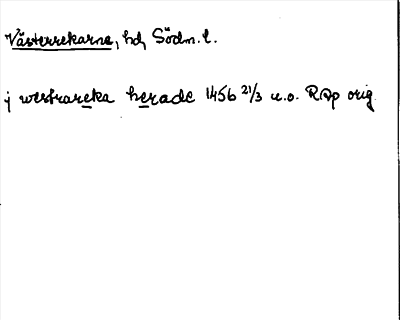 Västerrekarne, hd, Södm. l.
j westrareka herade 1456 21/3 u.o. RAp orig.